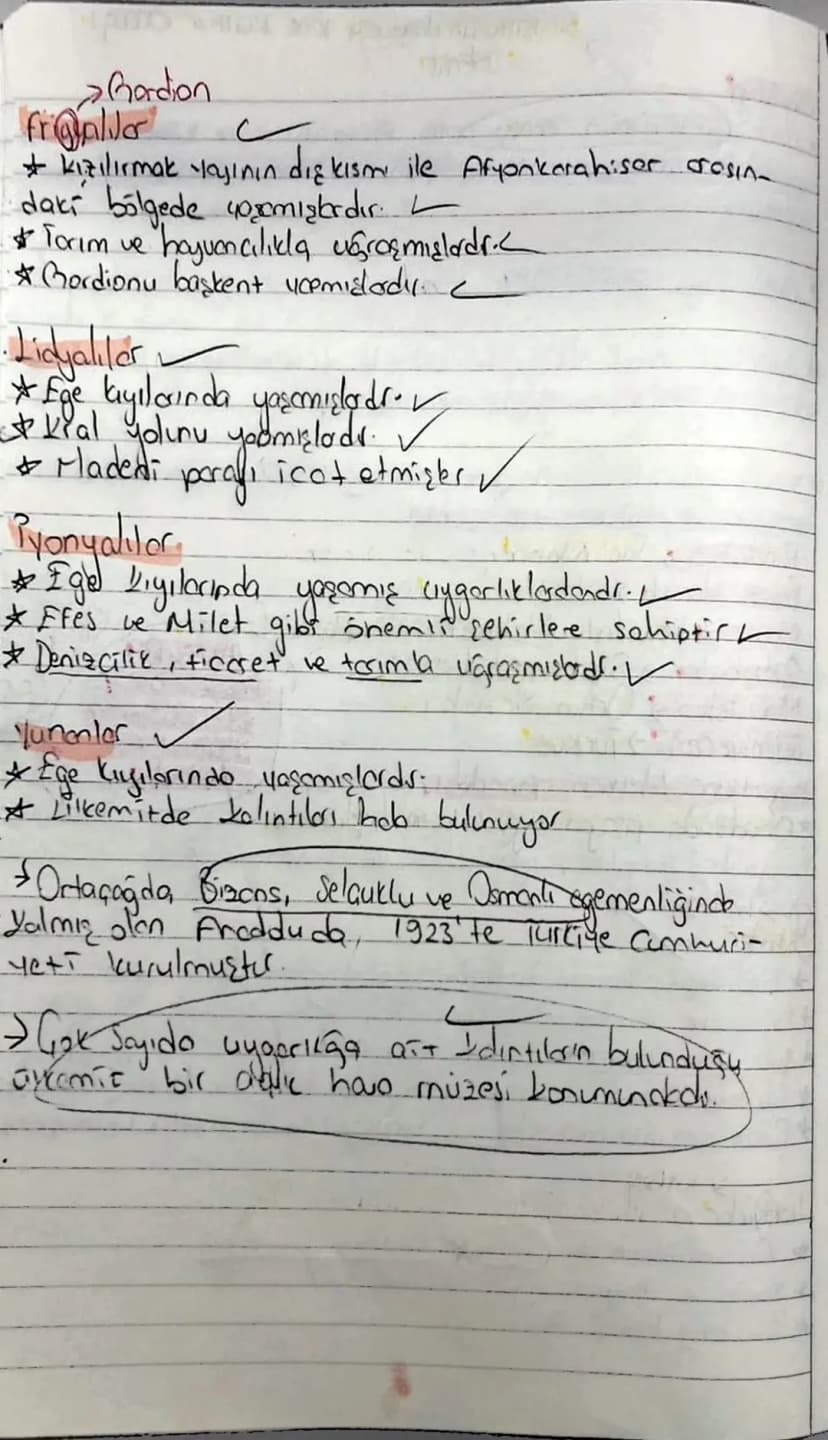 →Gordion
Frigyalılar
★ Kızılırmak yayının dış kısmı ile Afyonkarahisar arasın-
daki bölgede yaşamışlardır.
★ Tarım ve hayvancılıkla uğraşmışlardır.
★ Gordionu başkent yapmışlardır.
Lidyalılar
★ Ege kıyılarında yaşamışlardır.
★ Kral yolunu yapmışlardır.
★ Madeni parayı icat etmişler
İyonyalılar
★ Ege kıyılarında yaşamış uygarlıklardandır.
★ Efes ve Milet gibi önemli şehirlere sahiptir
★ Denizcilik, ticaret ve tarımla uğraşmışlardır.
Yunanlar
★ Ege kıyılarında yaşamışlardır.
★ Ülkemizde kalıntıları hala bulunuyor
→Ortaçağda, Bizans, Selçuklu ve Osmanlı egemenliğinde
kalmış olan Anadoluda, 1923'te Türkiye Cumhuri-
yeti kurulmuştur.
→ Çok sayıda uygarlığa ait kalıntıların bulunduğu
ülkemiz bir açık hava müzesi konumundadır.